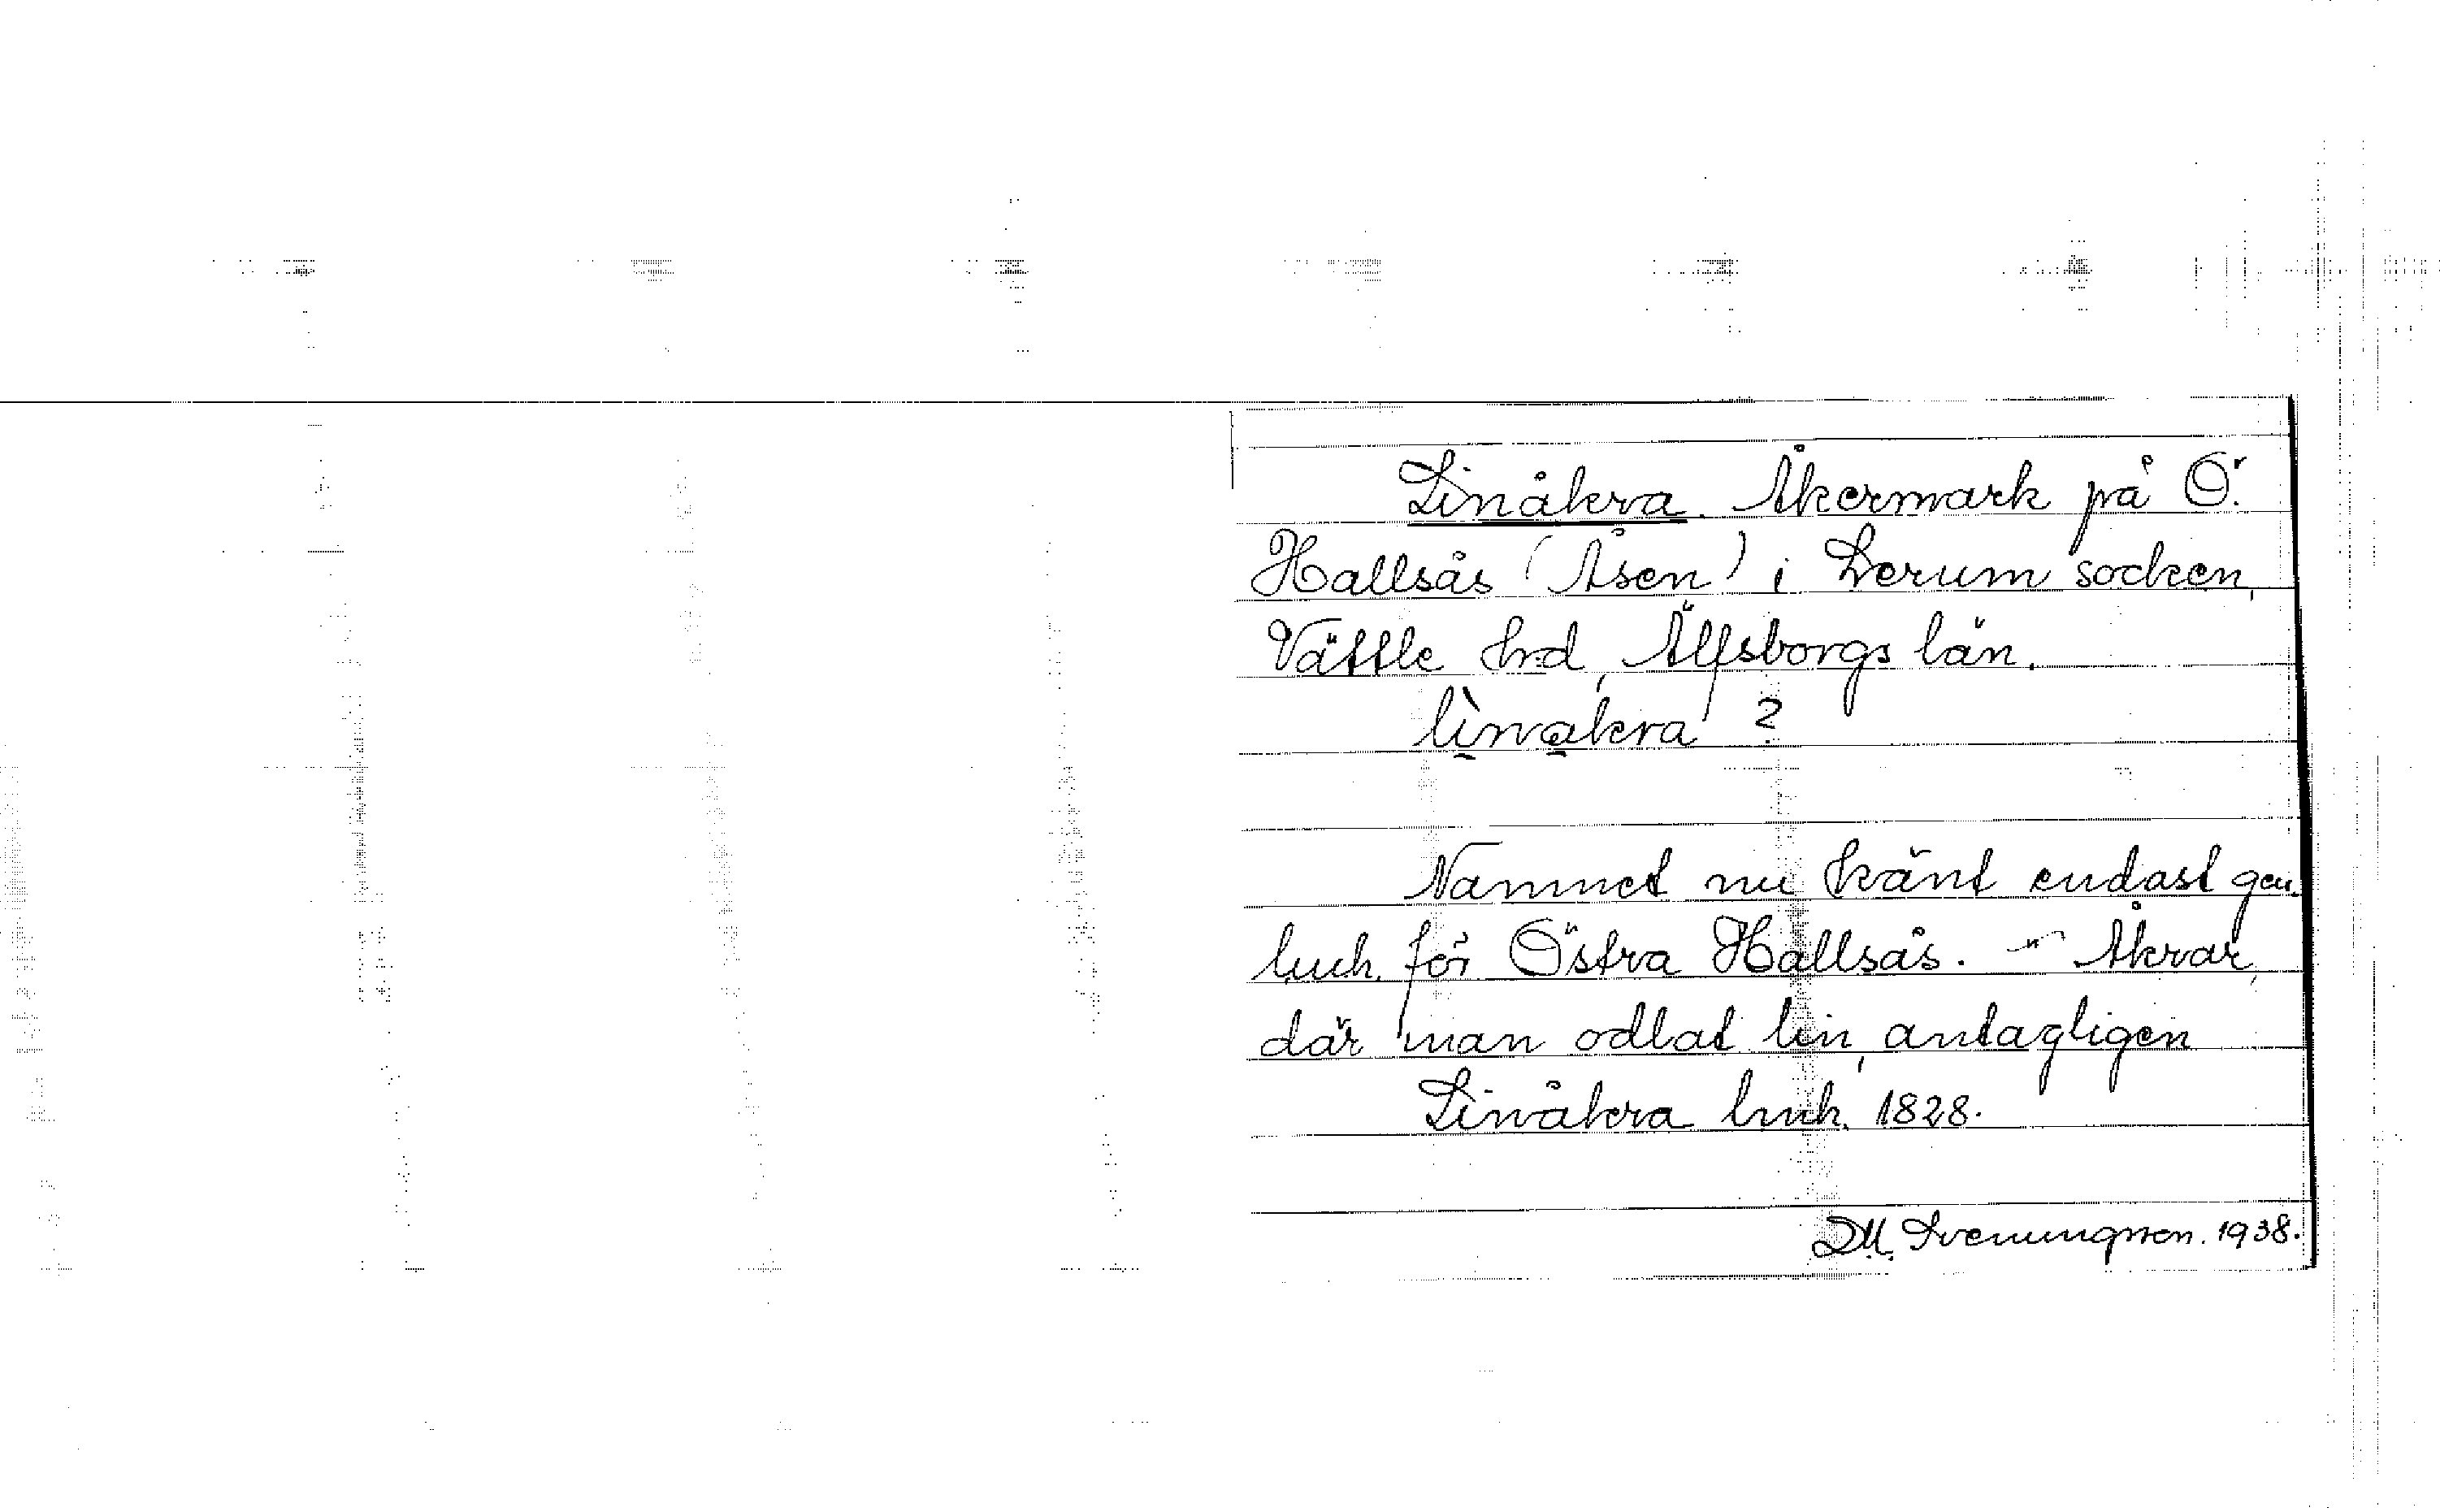 Linåkra. Åkermark på Ö.
Hallsås (Åsen) i Lerum socken,
Vättle hrd, Älfsborgs län.
lìnakra ?
Namnet nu känt endast gen.
luck. för Östra Hallsås. - Åkrar,
där man odlat lin, antagligen
Linåkra luck. 1828.
DM. Sveningsson. 1938.